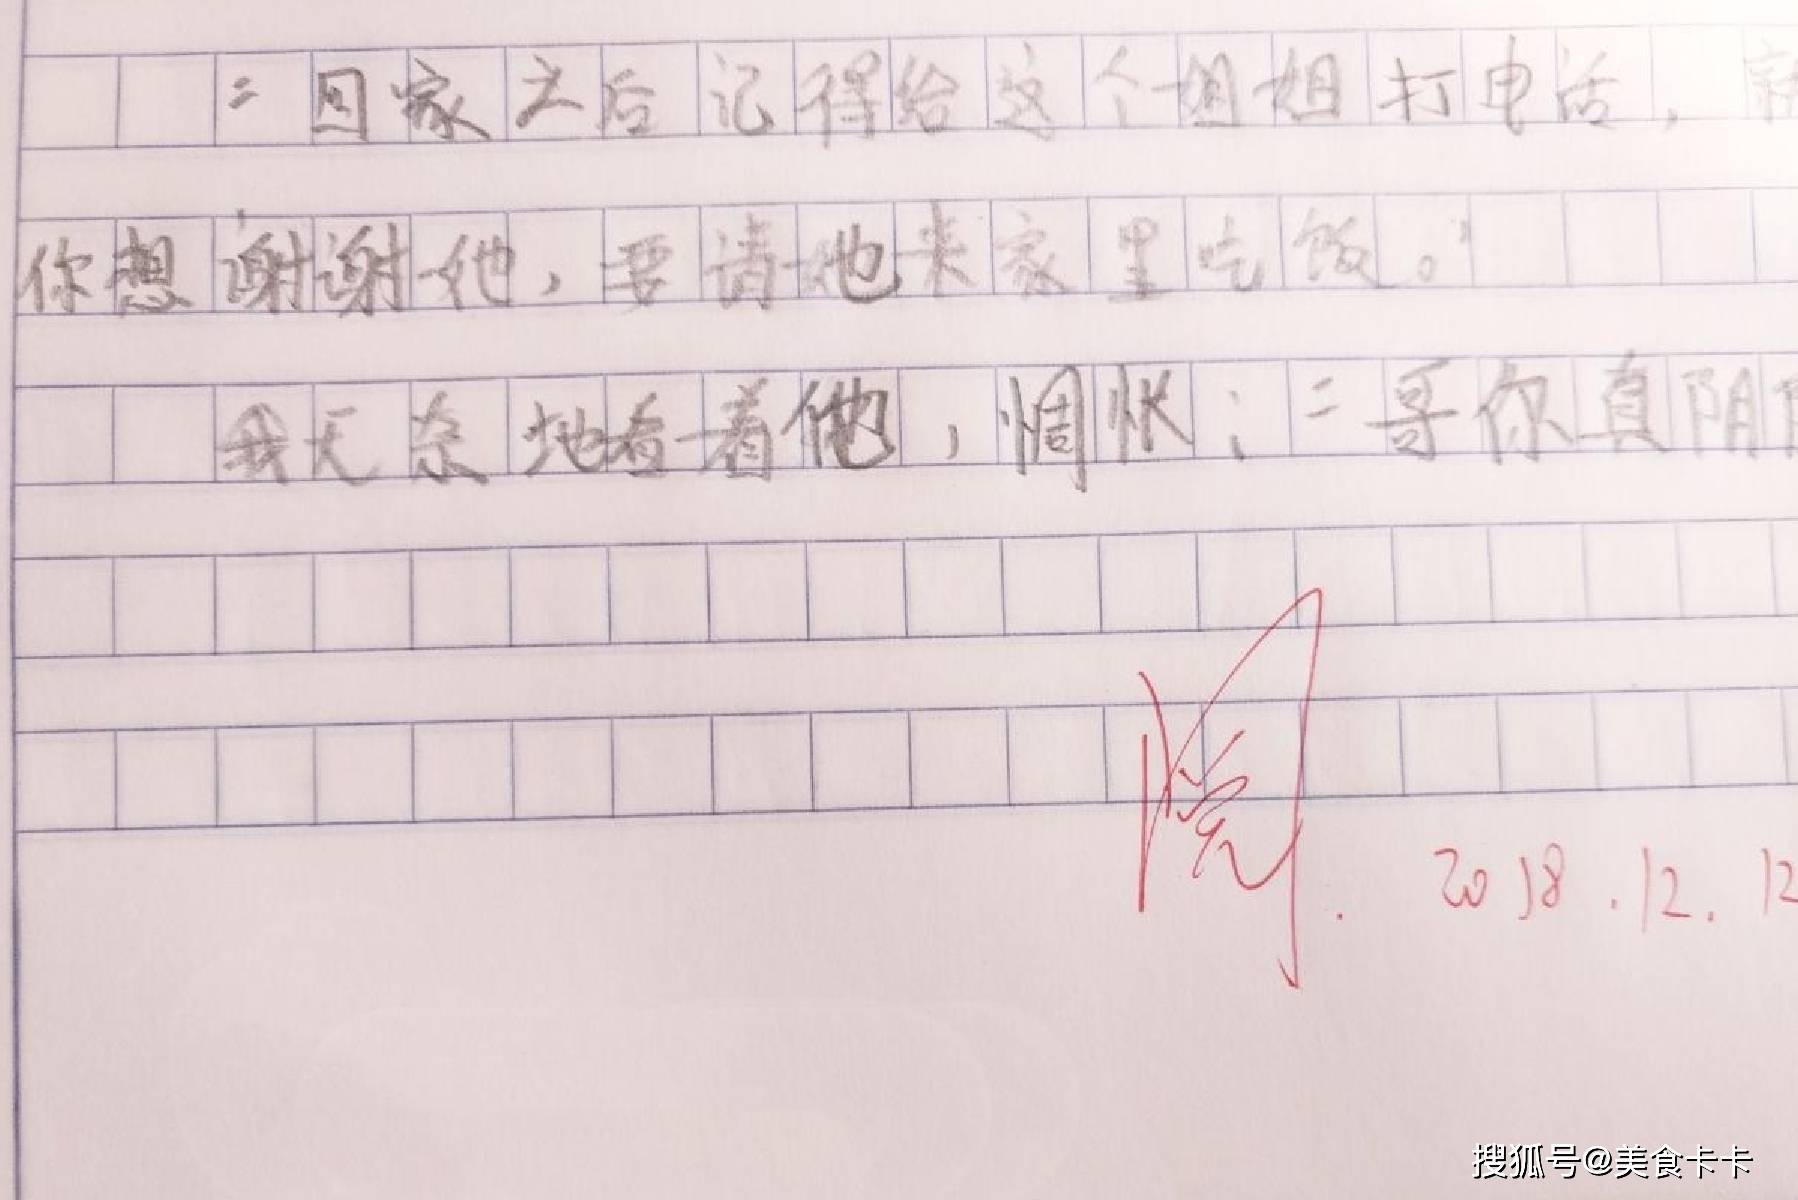 “回家之后记得给这个姐姐打电话，就
你想谢谢她，要请她来家里吃饭。”
我无奈地看着他，惆怅：“哥你真阴
阅
2018.12.12
搜狐号@美食卡卡